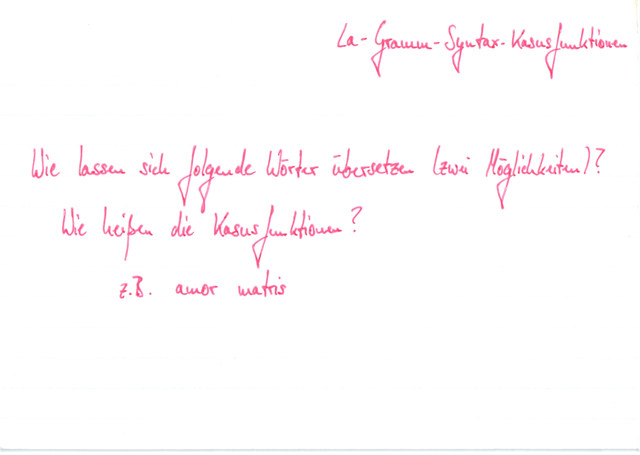 La-Gramm-Syntax-Kasusfunktionen
Wie lassen sich folgende Wörter übersetzen (zwei Möglichkeiten)?
Wie heißen die Kasusfunktionen?
z.B. amor matris